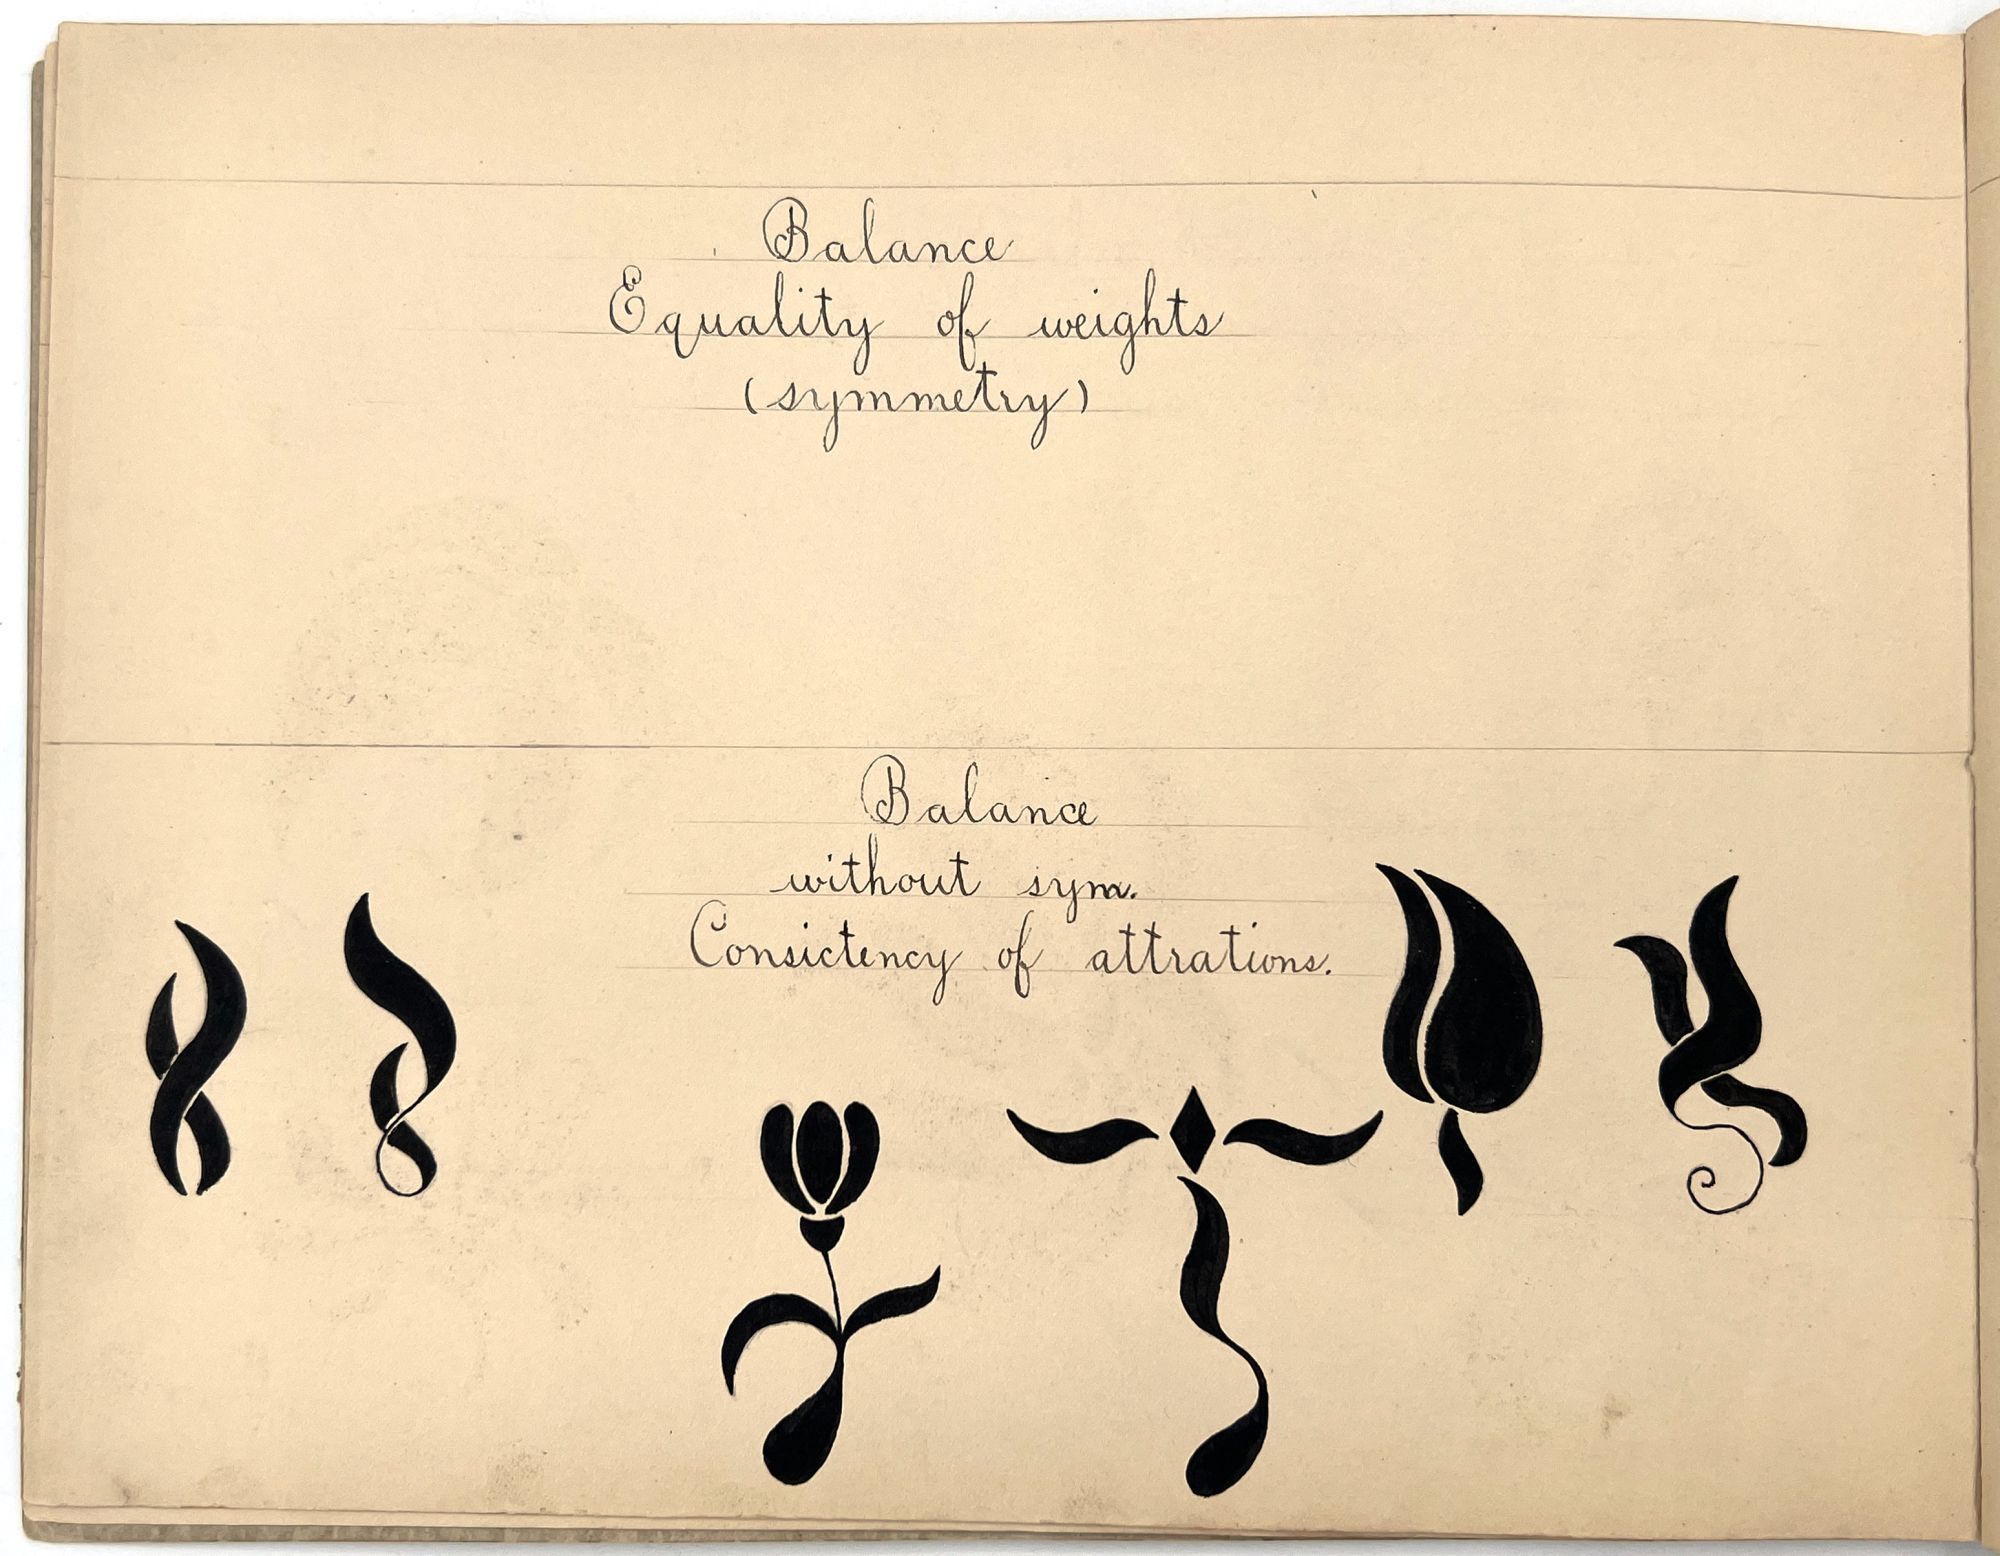 Balance
Equality of weights
(symmetry)
Balance
without sym.
Consictency of attrations.